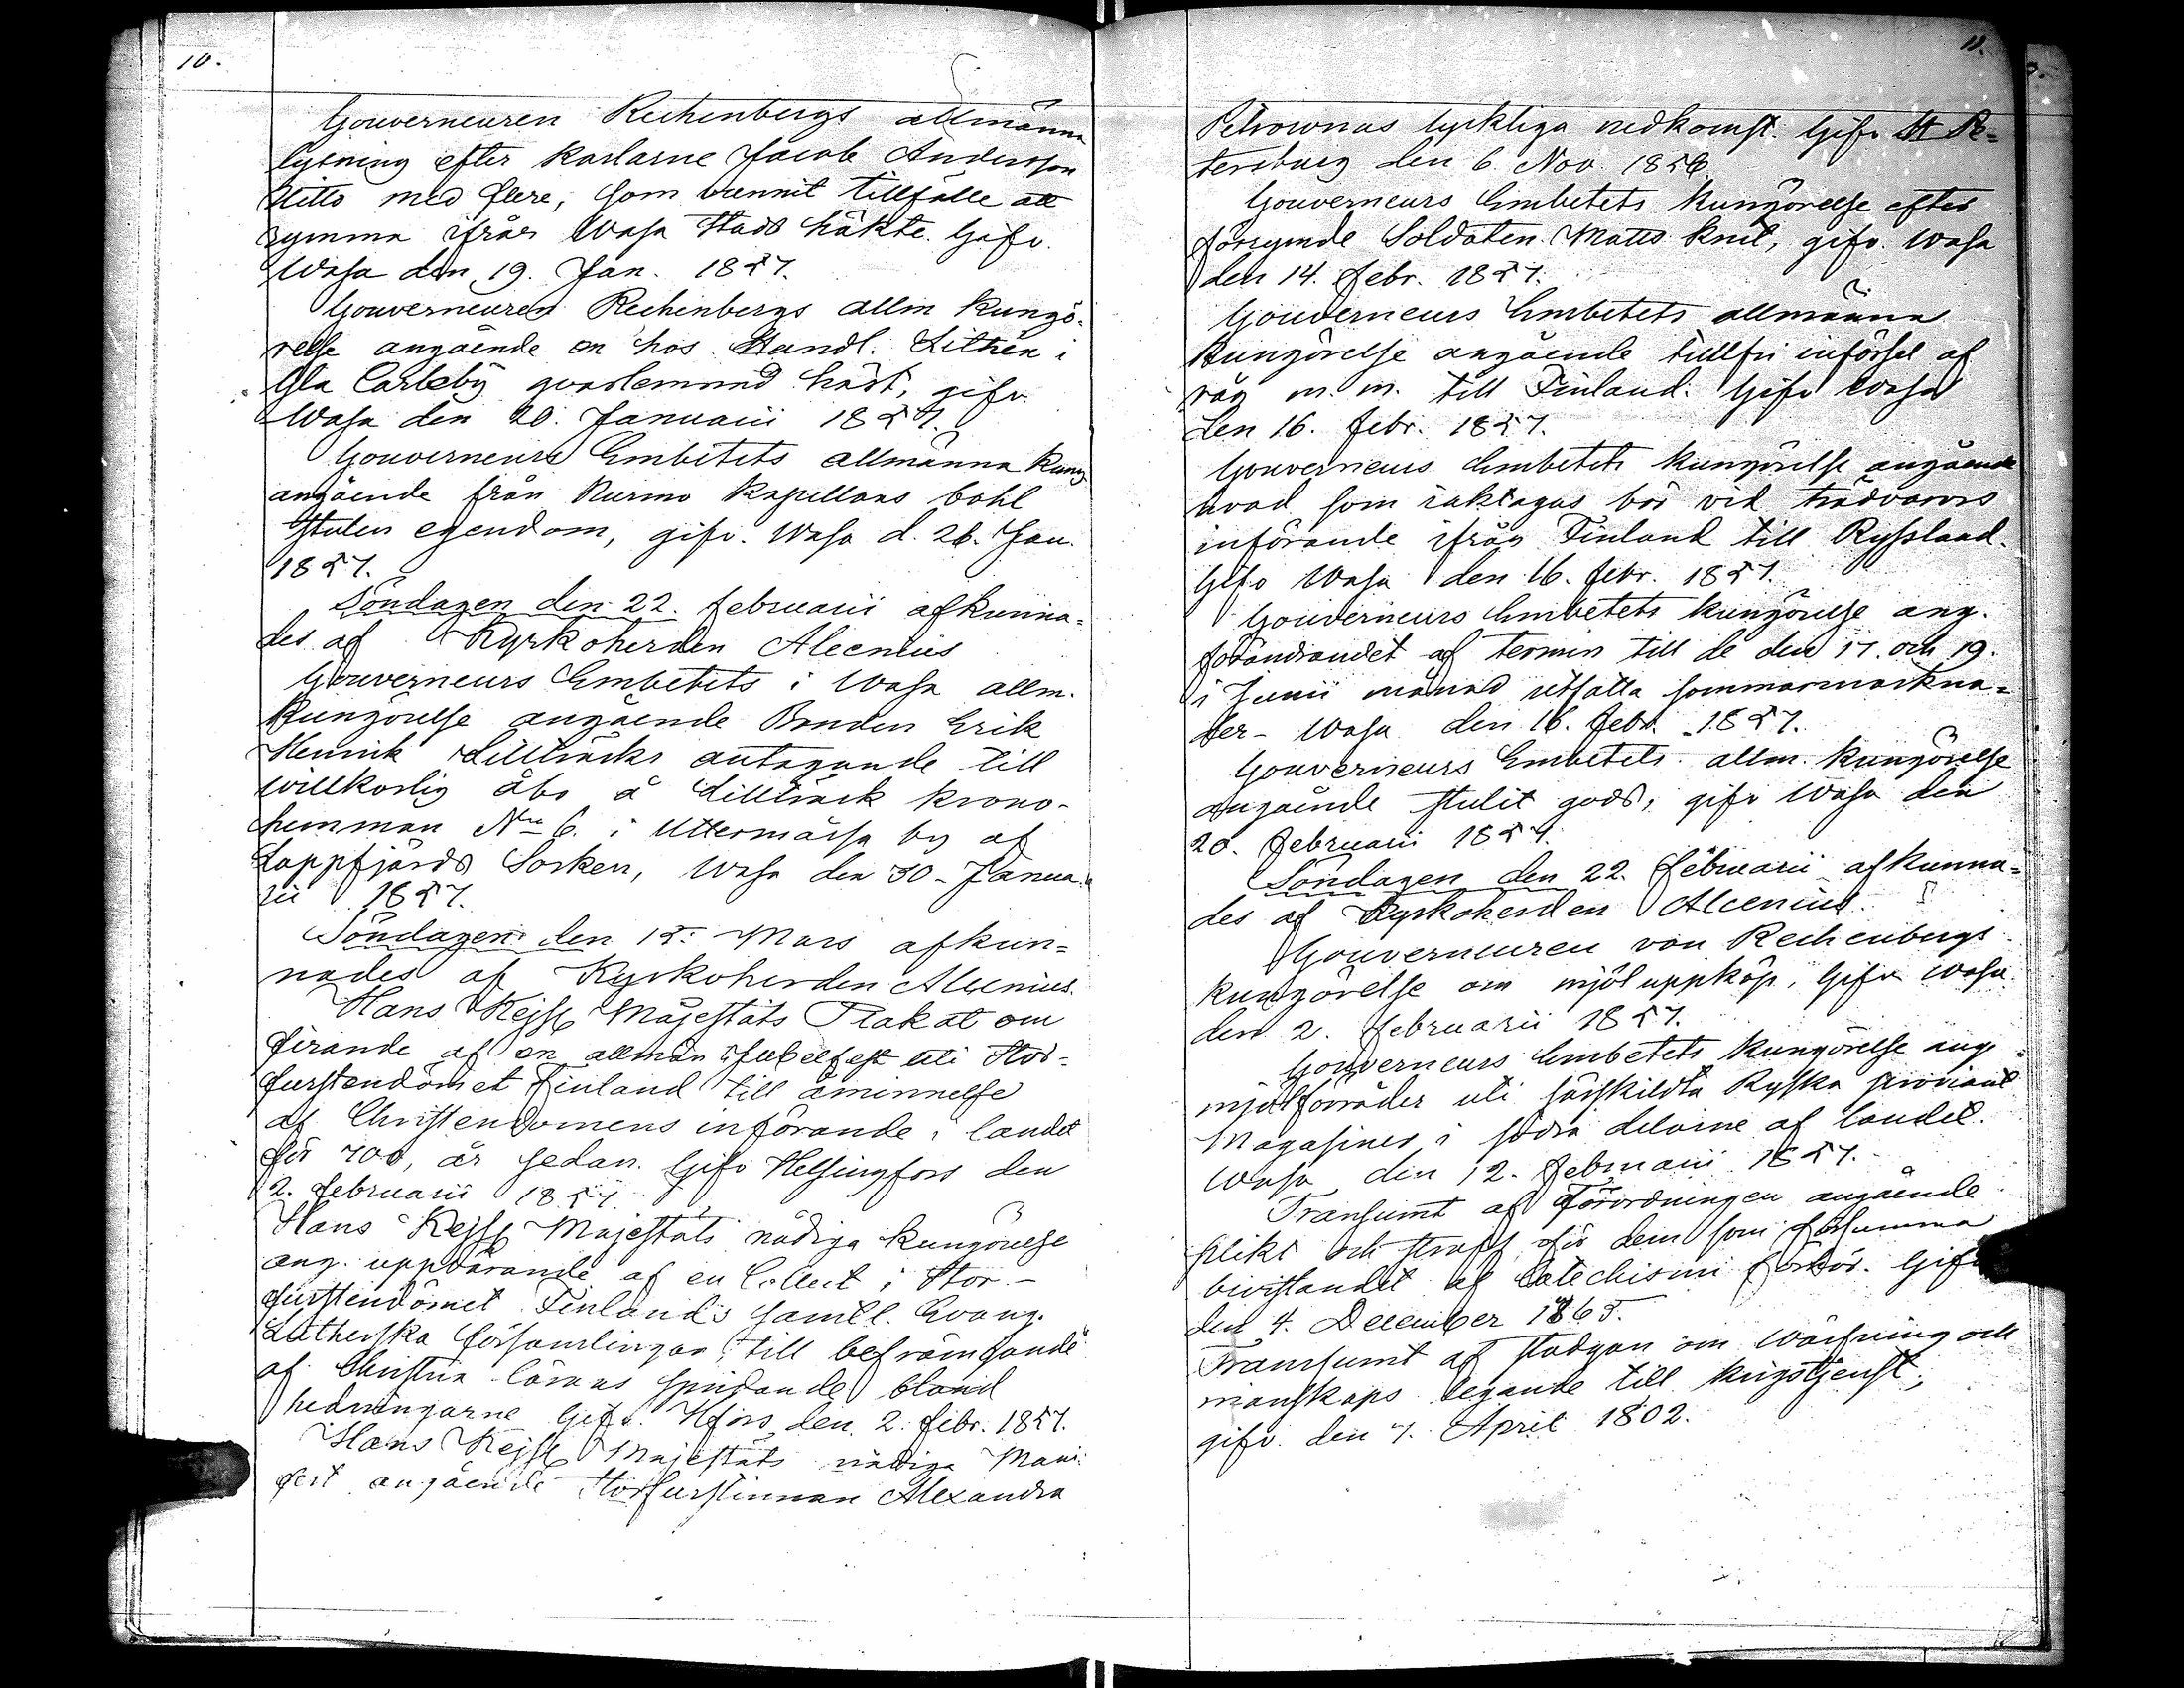 10.
Gouverneuren Rechenbergs allmänna
lysning efter karlarne Jacob Andersson
Hitto med flere, som vunnit tillfälle att
rymma ifrån Wasa Stads häkte. Gifv.
Wasa den 19. Jan. 1857.
Gouverneuren Rechenbergs allm kungö-
relse angående en hos Handl. Lithén i
Gla Carleby qvarlemnad häst, gifv
Wasa den 20. Januarii 1857.
Gouverneurs Embetets allmänna kung
angående från Kurmo kapellans bohl
stulen egendom, gifv. Wasa d. 26. Jan.
1857.
Söndagen den 22. februarii afkunna-
des af Kyrkoherden Alcenius
Gouverneurs Embetets i Wasa allm.
Kungörelse angående Bonden Erik
Henrik Lillträsks antagande till
willkorlig åbo å Lillträsk krono-
hemman No 6. i Uttermässa by af
Lappfjärds Socken, Wasa den 30. Janua-
rii 1857.
Söndagen den 15. Mars afkun-
nades af Kyrkoherden Alcenius.
Hans Kejsl Majestäts Plakat om
firande af en allmän jubelfest uti Stor-
furstendömet Finland till åminnelse
af Christendomens införande i landet
för 700, år sedan. Gifv Helsingfors den
2. februarii 1857.
Hans Kejsl Majestäts nådiga kungörelse
ang. uppbärande af en Collect i Stor-
furstendömet Finlands samtl. Evang.
Lutherska församlingar, till befrämjande
af Christna lärans spridande bland
hedningarne Gifv. Hfors den 2. febr. 1857.
Hans Kejsl Majestäts nådiga Mani-
fest angående Storfurstinnan Alexandra
11.
Petrownas lyckliga nedkomst. Gifv St Pe-
tersburg den 6. Nov. 1856.
Gouverneurs Embetets kungörelse efter
förrymde Soldaten Matts Knit, gifv. Wasa
den 14. febr. 1857.
Gouverneurs Embetets allmänna
Kungörelse angående tullfri införsel af
råg m. m. till Finland. Gifv Wasa
den 16. febr. 1857.
Gouverneurs Embetets kungörelse angående
hvad som iakttagas bör vid trädvarors
införande ifrån Finland till Ryssland.
Gifv Wasa den 16. febr. 1857.
Gouverneurs Embetets kungörelse ang.
förändrandet af termin till de den 17. och 19.
i Junii månad utsatta sommarmarkna-
der - Wasa den 16. febr. 1857.
Gouverneurs Embetets allm. kungörelse
angående stulit gods, gifv Wasa den
20. februarii 1857.
Söndagen den 22. februarii afkunna-
des af Kyrkoherden Alcenius
Gouverneuren von Rechenbergs
kungörelse om mjöl uppköp, Gifv Wasa
den 2. februarii 1857.
Gouverneurs Embetets kungörelse ang
mjölförråder uti särskildta Ryska proviant
Magasiner i södra delarne af landet.
Wasa den 12. februarii 1857.
Transumt af Förordningen angående
plikt och straff för dem som försumma
bivistandet af Catechismi förhör. Gifv
den 4. December 1765.
Transumt af stadgan om wärfning och
manskaps legande till krigstjenst,
gifv. den 7. April 1802.